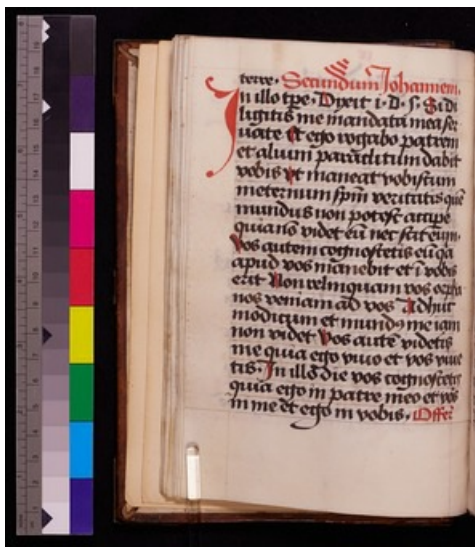 terre. Secundum Johannem.
In illo tpe. Dixit i. d. s. Si di
ligitis me mandata mea ser
uate Et ego rogabo patrem
et alium paraclitum dabit
vobis vt maneat vobiscum
in eternum spm veritatis quē
mundus non potest accipe
quia nō videt eū nec scit eum.
Vos autem cognoscetis eū qa
apud vos manebit et ī vobis
erit Non relinquam vos orpha
nos veniam ad vos Adhuc
modicum et mundꝯ me iam
non videt Vos autē videtis
me quia ego viuo et vos viue
tis. In illo die vos cognoscetis
quia ego in patre meo et vos
in me et ego in vobis. Offer̄